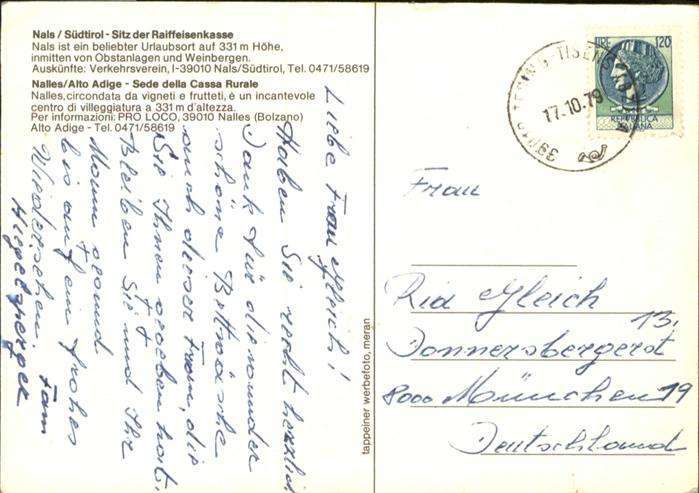 Nals / Südtirol - Sitz der Raiffeisenkasse
Nals ist ein beliebter Urlaubsort auf 331 m Höhe,
inmitten von Obstanlagen und Weinbergen.
Auskünfte: Verkehrsverein, I-39010 Nals/Südtirol, Tel. 0471/58619
Nalles/Alto Adige - Sede della Cassa Rurale
Nalles, circondata da vigneti e frutteti, è un incantevole
centro di villeggiatura a 331 m d'altezza.
Per informazioni: PRO LOCO, 39010 Nalles (Bolzano)
Alto Adige - Tel. 0471/58619
Liebe Frau Gleich!
Haben Sie recht herzlich
Dank für die wunder
schöne Bettwäsche
auch dieser Frau, die
Sie Ihnen gegeben hat.
Bleiben Sie und Ihr
Mann gesund
bis auf ein frohes
Wiedersehen. Fam
tappeiner werbefoto, meran
LIRE 120
REPUBBLICA
ITALIANA
17.10.79
Frau
Ria Gleich
Donnersbergerst 13.
8000 München 19
Deutschland